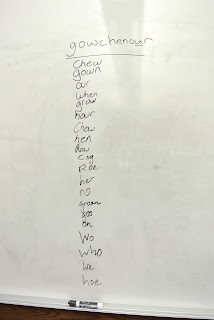 gowchenour
chew
gown
our
when
grow
hour
chow
hen
now
cog
Roe
her
no
groan
goo
on
wo
who
we
hoe